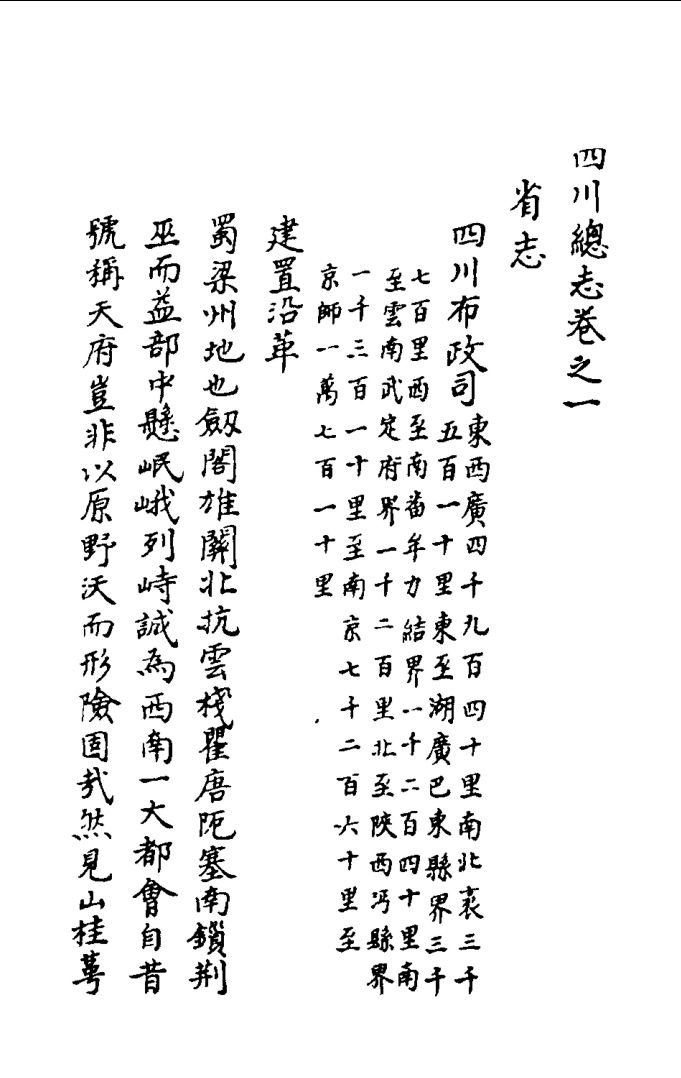 四川總志卷之一
省志
四川布政司東西廣四千九百四十里南北袤三千
五百一十里東至湖廣巴東縣界三千
七百里西至南畨年力結界一千二百四十里南
至雲南武定府界一千二百里北至陝西沔縣界
一千三百一十里至南京七千二百六十里至
京師一萬七百一十里
建置沿革
蜀梁州地也劔閣雄關北抗雲棧瞿唐阨塞南鎖荆
巫而益部中懸岷峨列峙誠為西南一大都會自昔
號稱天府豈非以原野沃而形險固哉然見山桂萼